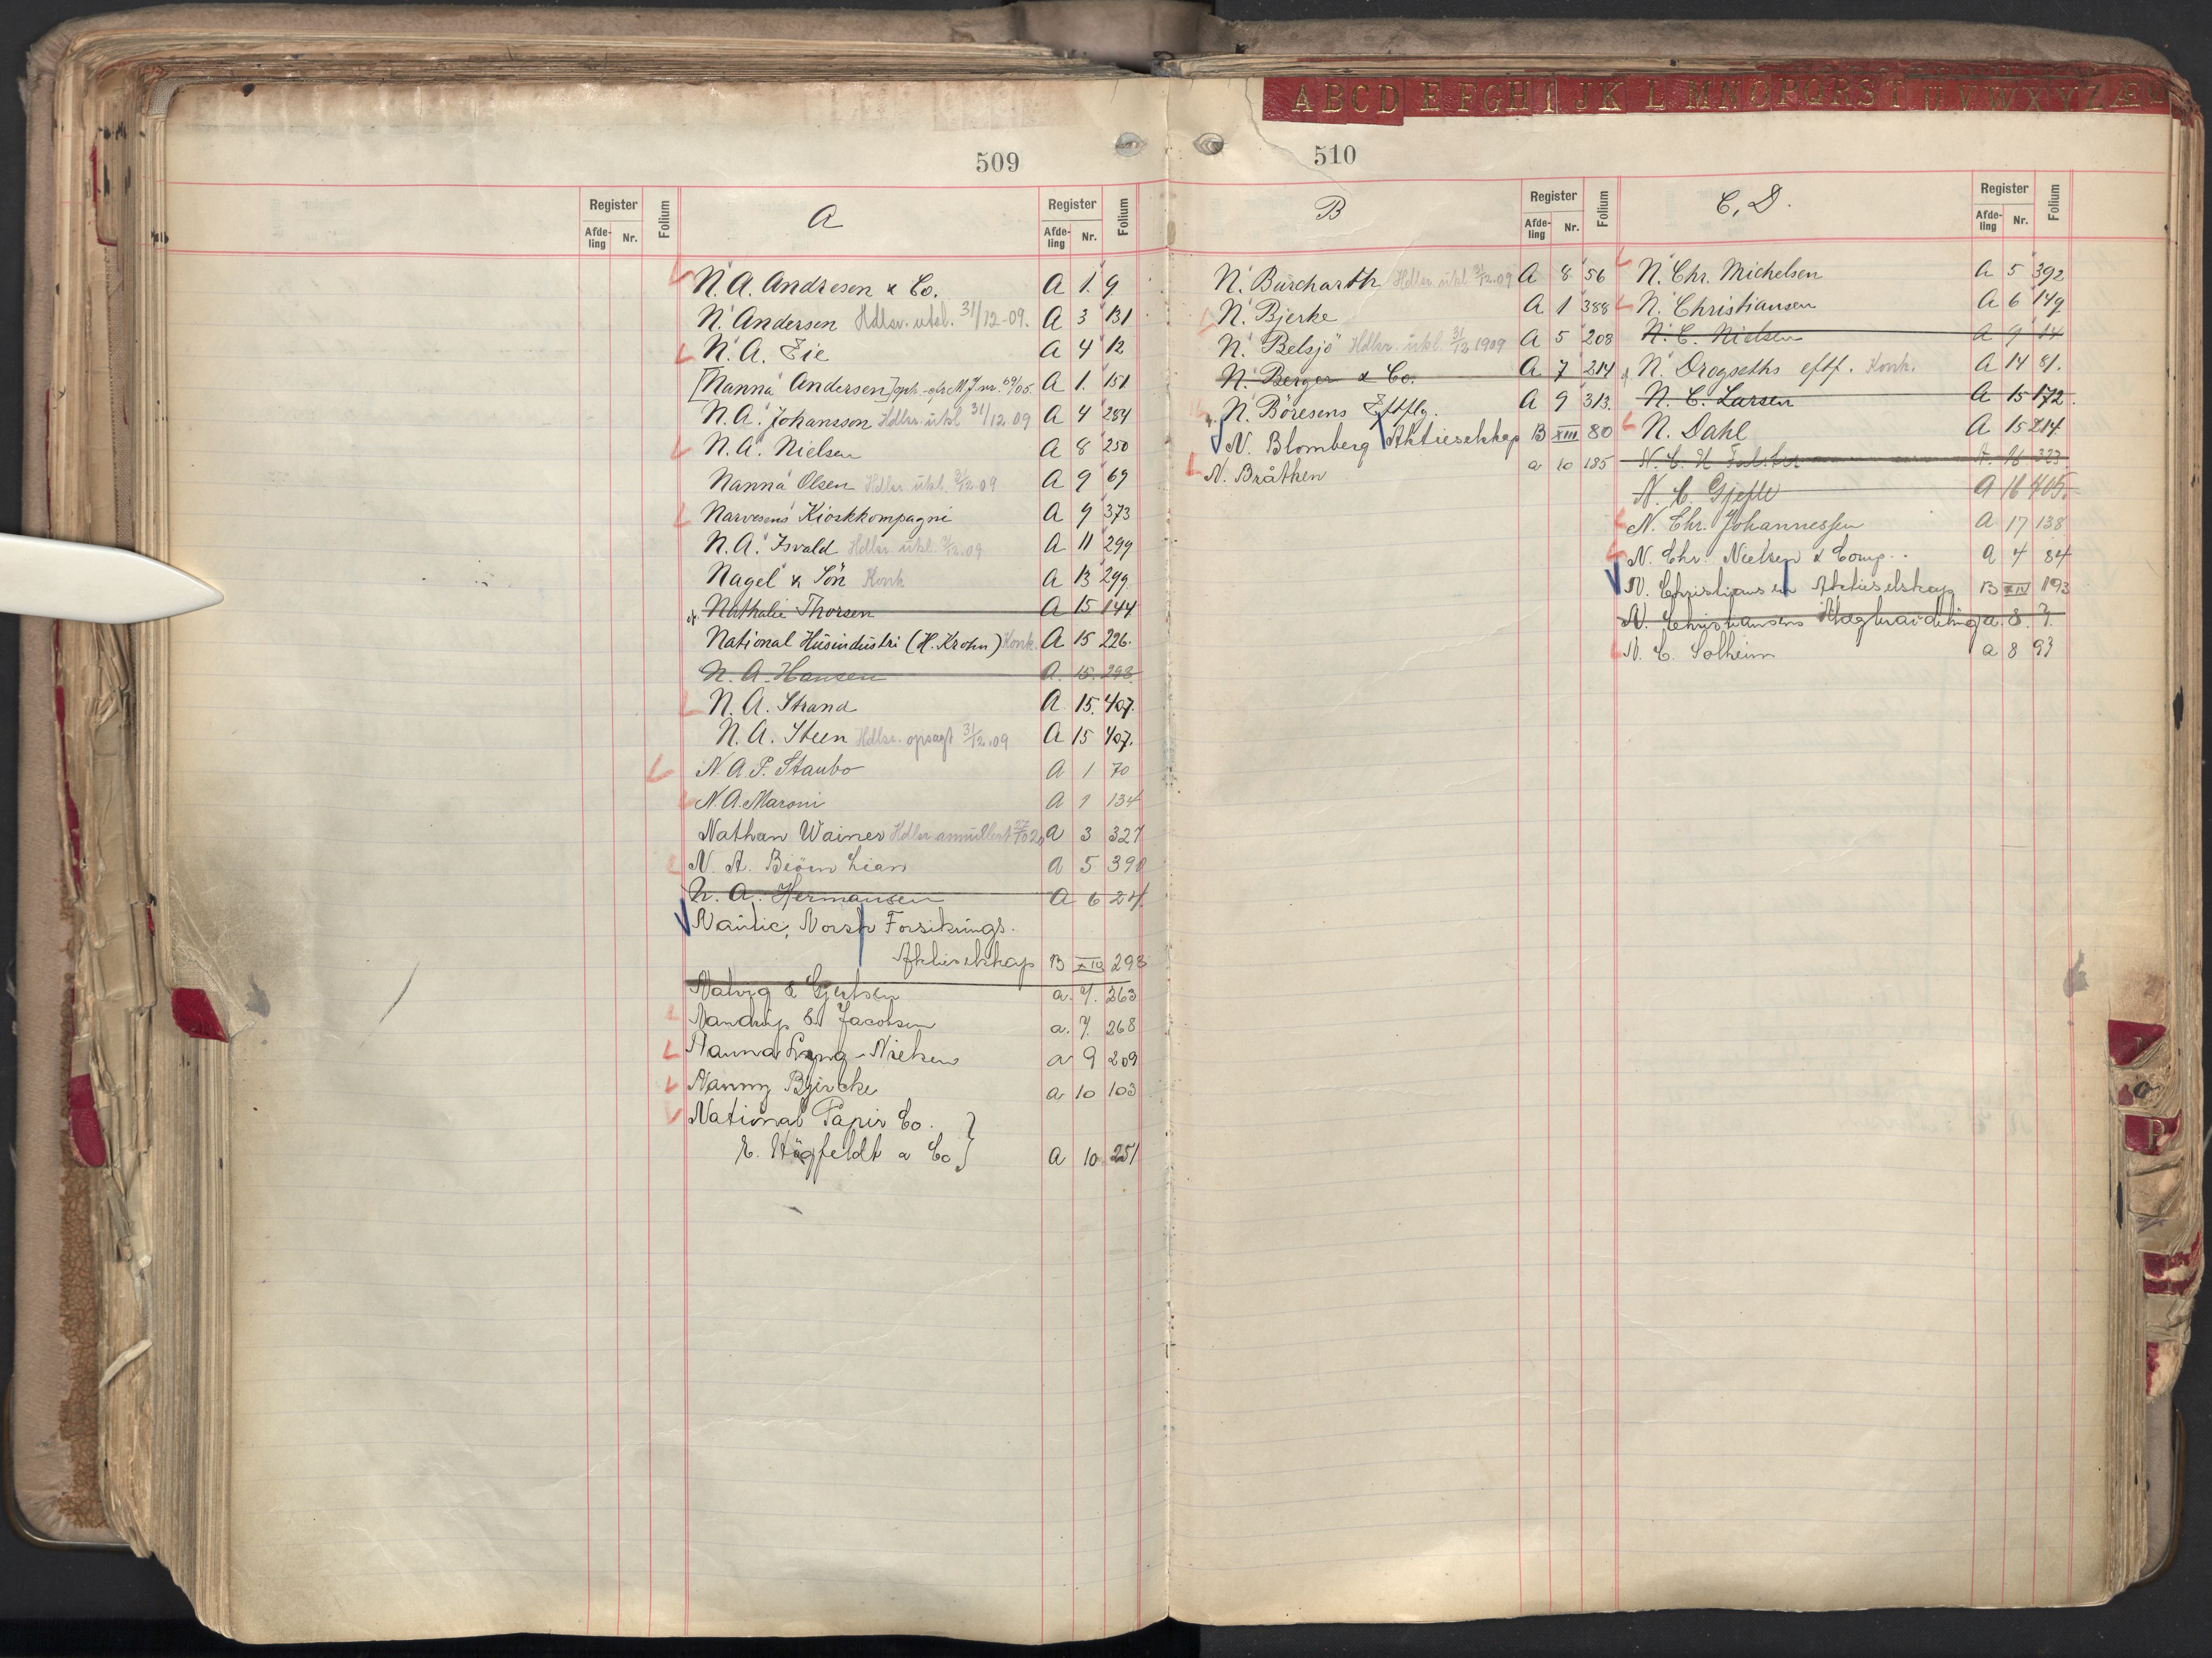 509
Register Folium Register Folium
Afde-ling Nr. A Afde-ling Nr.
N. A. Andresen & Co. A 1. 9
N. Andersen Hdlsr. utsl. 31/12-09. A 3 131
N. A. Eie A 4 12
[Nanna Andersen] A 1. 151
N. A. Johansson Hdlsr. utsl 31/12 09 A 4 284
N. A. Nielsen A 8 250
Nanna Olsen Hdlsr. utsl. 31/12-09 A 9 69
Narvesens Kioskkompagni A 9 373
N. A. Isvald Hdlsr. utsl. 31/12.09 A 11 299
Nagel & Sön Konk A 13 299.
Nathalie Thorsen A 15 144
National Husindustri (H. Krohn) Konk. A 15 226.
N. A. Hansen A. 15. 298.
N. A. Strand A 15. 407.
N. A. Steen Hdlsr. opsagt 31/12.09 A 15 407.
N. A. P. Staubo A 1 70
N. A. Maroni A 1 134
Nathan Wainer Hdlsr annullert A 3 327
N. A. Bjørn Lian A 5 390
N. A. Hermansen A 6 24
Nautic, Norsk Forsikrings.
Aktieselskap B XIV 298
Natvig & Gjertsen a. 7. 263
Nandrup & Jacobsen a. 7. 268
Nanna Lyng-Nielsen a 9 209
Nanny Bjercke a 10 103
National Papir Co. }
E. Hägfeldt a Co } A 10 251
510
A B C D E F G H I J K L M N O P Q R S T U V W X Y Z Æ Ø
B Register Folium
Afde-ling Nr.
N. Burcharth Hdlsr. utsl 31/12.09 A 8 56
N. Bjerke A 1 388
N. Belsjö Hdlsr. utsl. 31/12 1909 A 5 208
N. Berger & Co. A 7 214
N. Böresens Eftflg. A 9 313.
N. Blomberg Aktieselskap B XIII 80
N. Bråthen a 10 185
C, D. Register Folium
Afde-ling Nr.
N. Chr. Michelsen A 5 392
N. Christiansen A 6 149
N. C. Nielsen A 9 14
N. Drogseths eftf. Konk. A 14 81.
N. C. Larsen A 15 172.
N. Dahl A 15 214
N. C. H. A. 16 323
N. C. Gjefle A 16 405.
N. Chr. Johannessen A 17 138
N. Chr. Nielsen & Comp. A 4 84
N. Christiansen Aktieselskap B XIV 193
N. Christiansens a. 8. 7.
N. C. Solheim a 8 93
P